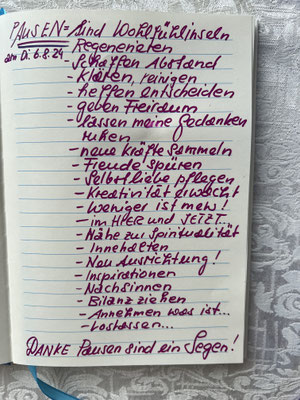 PAUSEN = sind Wohlfühlinseln
am Di. 6.8.24 - Regenerieren
- Schaffen Abstand
- Klären, reinigen
- helfen entscheiden
- geben Freiraum
- lassen meine Gedanken
ruhen
- neue Kräfte sammeln
- Freude spüren
- Selbstliebe pflegen
- Kreativität erwacht
- Weniger ist mehr!
- im HIER und JETZT.
- Nähe zur Spiritualität
- Innehalten
- Neu Ausrichtung!
- Inspirationen
- Nachsinnen
- Bilanz ziehen
- Annehmen was ist...
- Loslassen...
DANKE Pausen sind ein Segen!